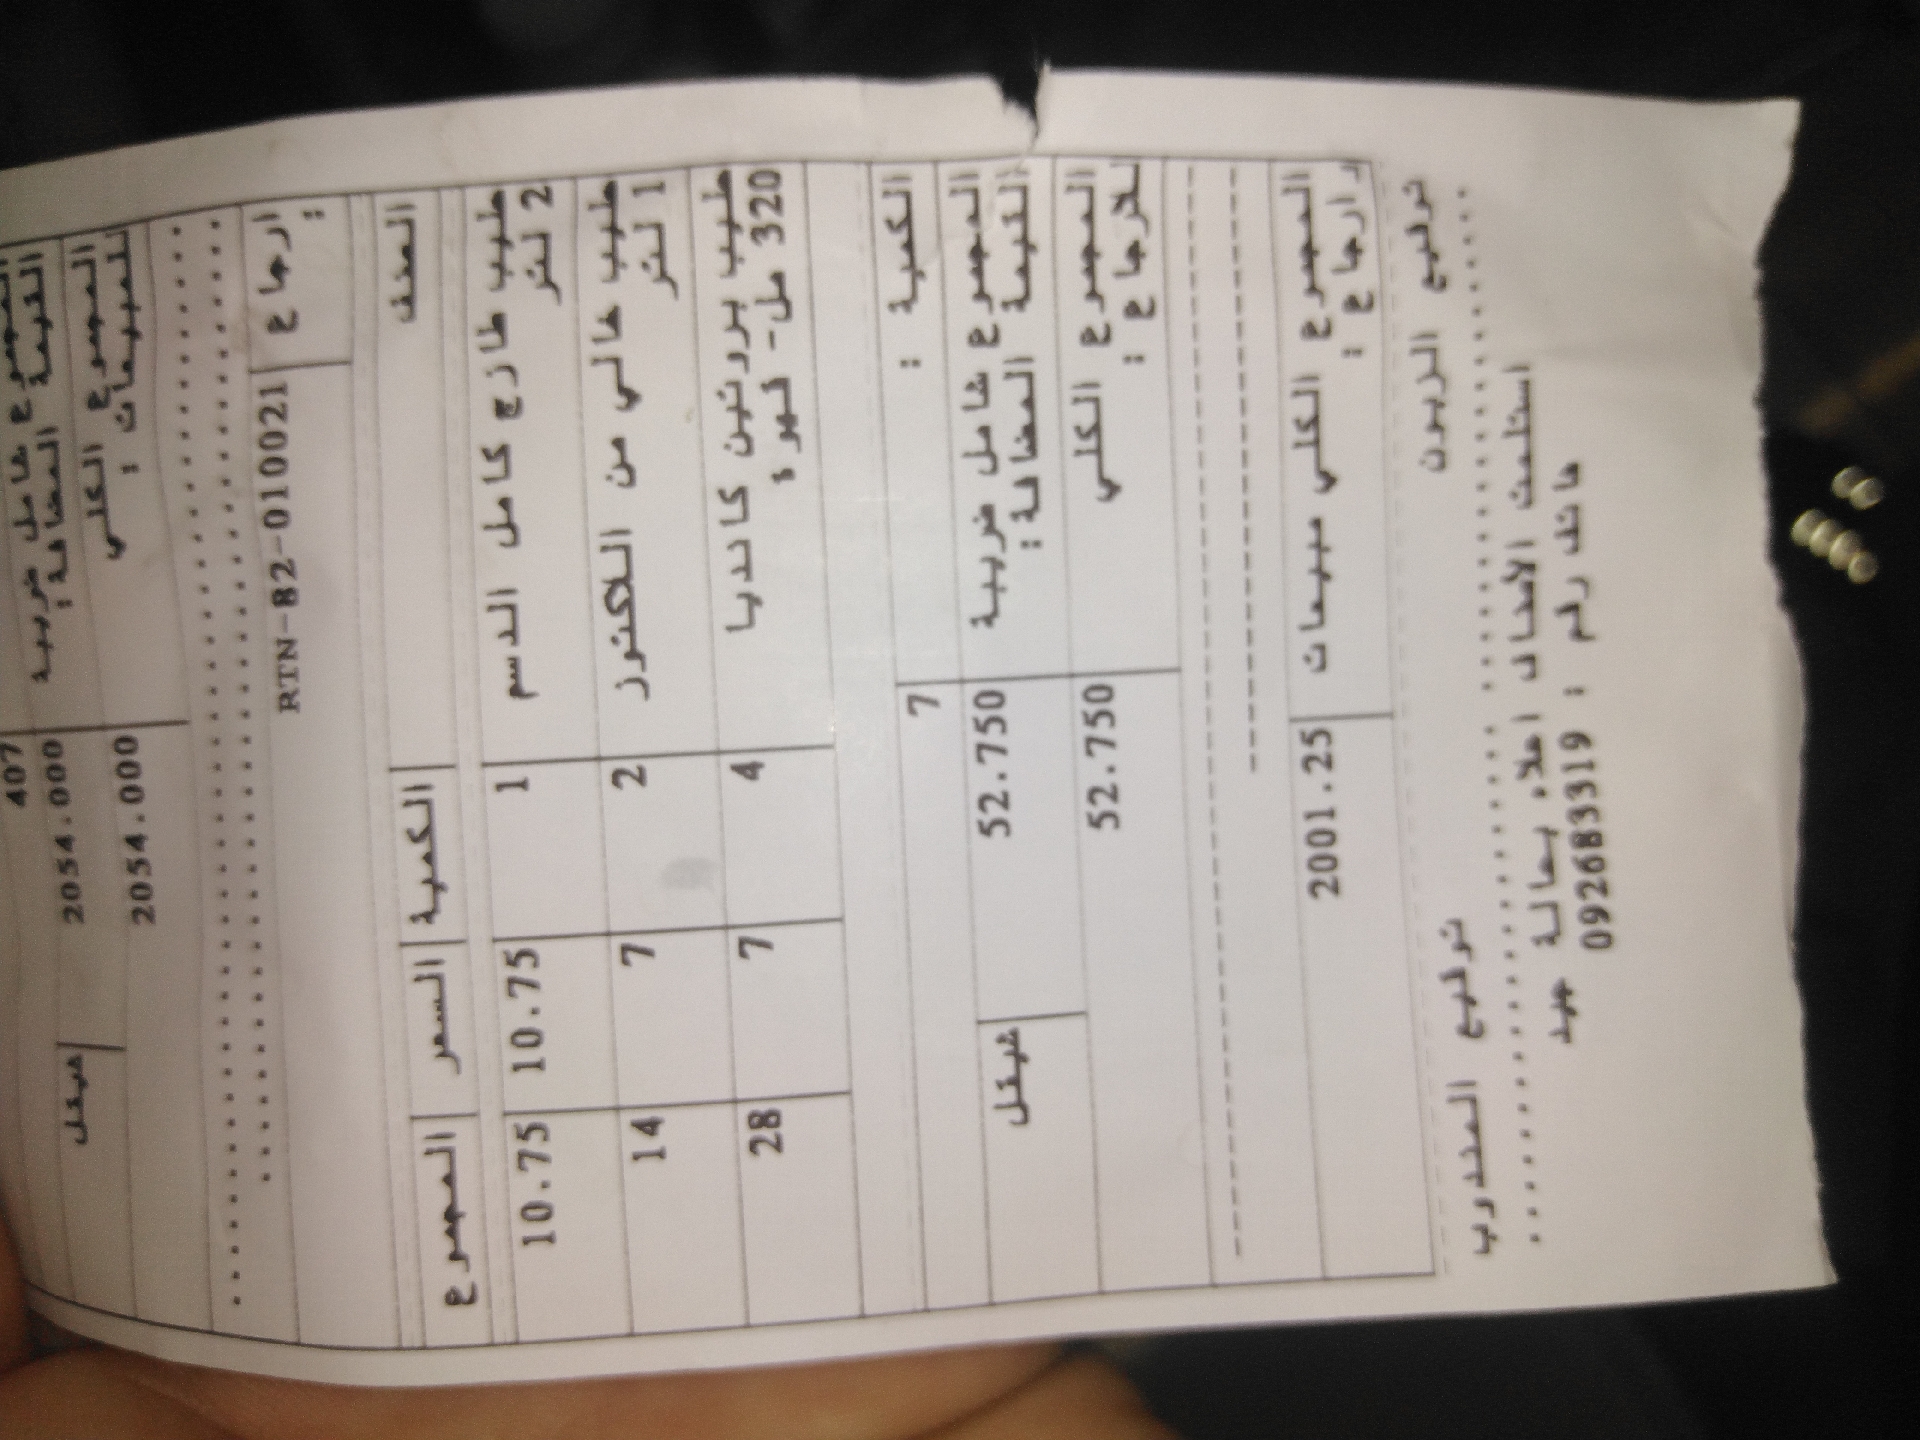 407
المجموع شامل ضريبة 2054.000 شيقل
القيمة المضافة:
المجموع الكلي 2054.000
للمبيعات :
ارجاع : RTN-82-010021
الصنف الكمية السعر المجموع
حليب طازج كامل الدسم 1 10.75 10.75
2 لتر
حليب خالي من اللاكتوز 2 7 14
1 لتر
حليب بروتين كانديا 4 7 28
320 مل- قهوة
الكمية : 7
المجموع شامل ضريبة 52.750 شيقل
القيمة المضافة:
المجموع الكلي 52.750
للارجاع :
المجموع الكلي مبيعات 2001.25
و ارجاع :
توقيع الزبون توقيع المندوب
استلمت الأصناف اعلاه بحالة جيد
هاتف رقم : 092683319